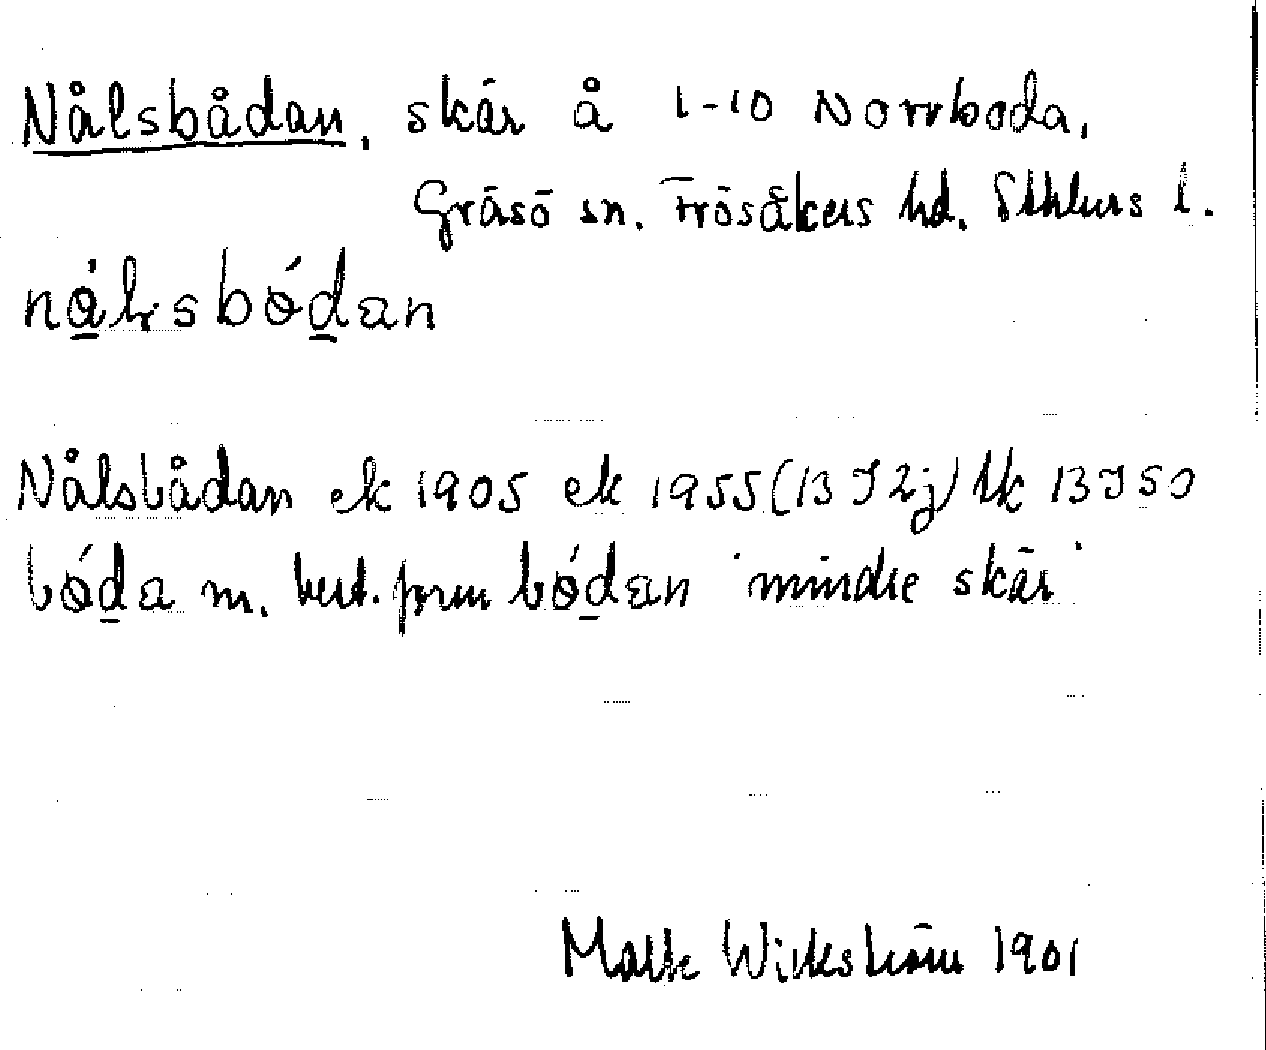 Nålsbådan, skär å 1-10 Norrboda,
Gräsö sn. Frösåkers hd. Sthlms l.
nålsbódan
Nålsbådan ek 1905 ek 1955 (13 I 2j) tk 13I50
bóda m. best. form bódan 'mindre skär'
Wickström 1901